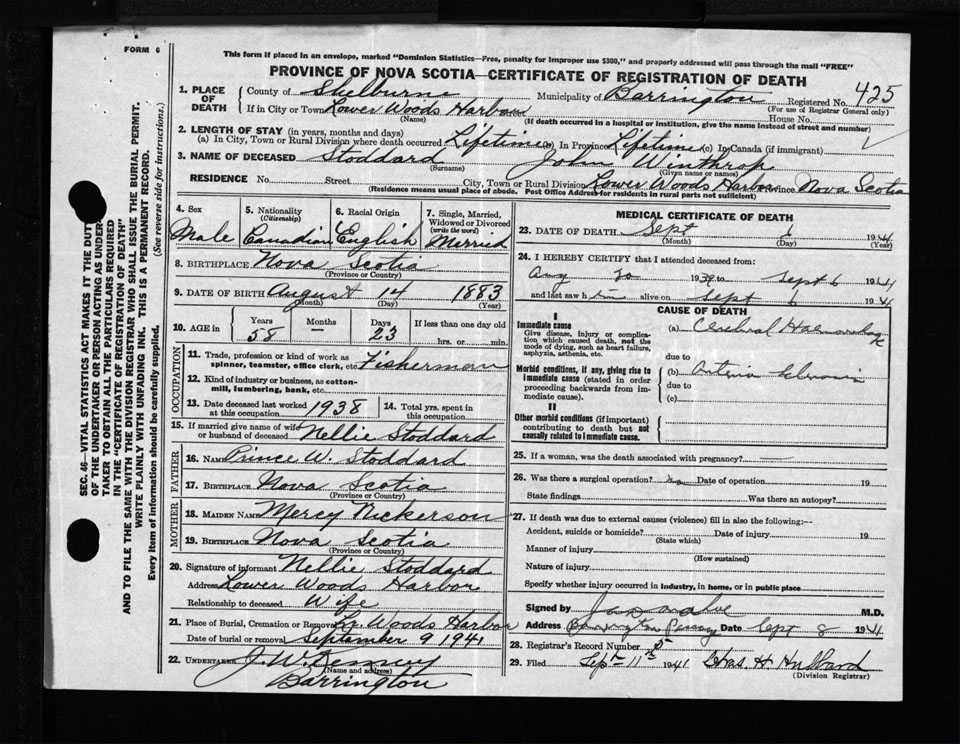 FORM 6
This form if placed in an envelope, marked "Dominion Statistics—Free, penalty for improper use $300," and properly addressed will pass through the mail "FREE"
PROVINCE OF NOVA SCOTIA—CERTIFICATE OF REGISTRATION OF DEATH
1. PLACE OF DEATH
County of Shelburne Municipality of Barrington Registered No. 425
(For use of Registrar General only)
If in City or Town Lower Woods Harbour House No.
(Name) (If death occurred in a hospital or institution, give the name instead of street and number)
2. LENGTH OF STAY (in years, months and days)
(a) In City, Town or Rural Division where death occurred Lifetime (b) In Province Lifetime (c) In Canada (if immigrant)
3. NAME OF DECEASED Stoddard John Winthrop
(Surname) (Given name or names)
RESIDENCE No. Street City, Town or Rural Division Lower Woods Harbor Province Nova Scotia
(Residence means usual place of abode. Post Office Address for residents in rural parts not sufficient)
SEC. 46—VITAL STATISTICS ACT MAKES IT THE DUTY
OF THE UNDERTAKER OR PERSON ACTING AS UNDER
TAKER TO OBTAIN ALL THE PARTICULARS REQUIRED
IN THE "CERTIFICATE OF REGISTRATION OF DEATH"
AND TO FILE THE SAME WITH THE DIVISION REGISTRAR WHO SHALL ISSUE THE BURIAL PERMIT.
WRITE PLAINLY WITH UNFADING INK. THIS IS A PERMANENT RECORD.
Every item of information should be carefully supplied. (See reverse side for instructions.)
4. Sex 5. Nationality (Citizenship) 6. Racial Origin 7. Single, Married, Widowed or Divorced (write the word)
Male Canadian English Married
8. BIRTHPLACE Nova Scotia
(Province or Country)
9. DATE OF BIRTH August 14 1883
(Month) (Day) (Year)
10. AGE in Years Months Days If less than one day old
58 23 hrs. or min.
OCCUPATION
11. Trade, profession or kind of work as spinner, teamster, office clerk, etc. Fisherman
12. Kind of industry or business, as cotton-mill, lumbering, bank, etc.
13. Date deceased last worked at this occupation 1938 14. Total yrs. spent in this occupation
15. If married give name of wife or husband of deceased Nellie Stoddard
FATHER
16. Name Prince W. Stoddard
17. Birthplace Nova Scotia
(Province or Country)
MOTHER
18. MAIDEN NAME Mercy Nickerson
19. Birthplace Nova Scotia
(Province or Country)
20. Signature of informant Nellie Stoddard
Address Lower Woods Harbor
Relationship to deceased Wife
21. Place of Burial, Cremation or Removal Lr. Woods Harbor
Date of burial or removal September 9 1941
22. UNDERTAKER J. W. Kenney
(Name and address)
Barrington
MEDICAL CERTIFICATE OF DEATH
23. DATE OF DEATH Sept 19
(Month) (Day) (Year)
24. I HEREBY CERTIFY that I attended deceased from:
Aug 20 1939 to Sept 6 19
and last saw h im alive on Sept 6 19
CAUSE OF DEATH
I
Immediate cause
Give disease, injury or complication which caused death, not the mode of dying, such as heart failure, asphyxia, asthenia, etc.
(a) Cerebral Haemorrhage
due to
Morbid conditions, if any, giving rise to immediate cause (stated in order proceeding backwards from immediate cause).
(b)
due to
(c)
II
Other morbid conditions (if important) contributing to death but not causally related to immediate cause.
25. If a woman, was the death associated with pregnancy?
26. Was there a surgical operation? no Date of operation 19
State findings Was there an autopsy?
27. If death was due to external causes (violence) fill in also the following:—
Accident, suicide or homicide? Date of injury 19
(State which)
Manner of injury
(How sustained)
Nature of injury
Specify whether injury occurred in industry, in home, or in public place
Signed by M.D.
Address Barrington Date Sept 8 19
28. Registrar's Record Number 5
29. Filed Sept 11th 1941 Chas. H. Hubbard
(Division Registrar)